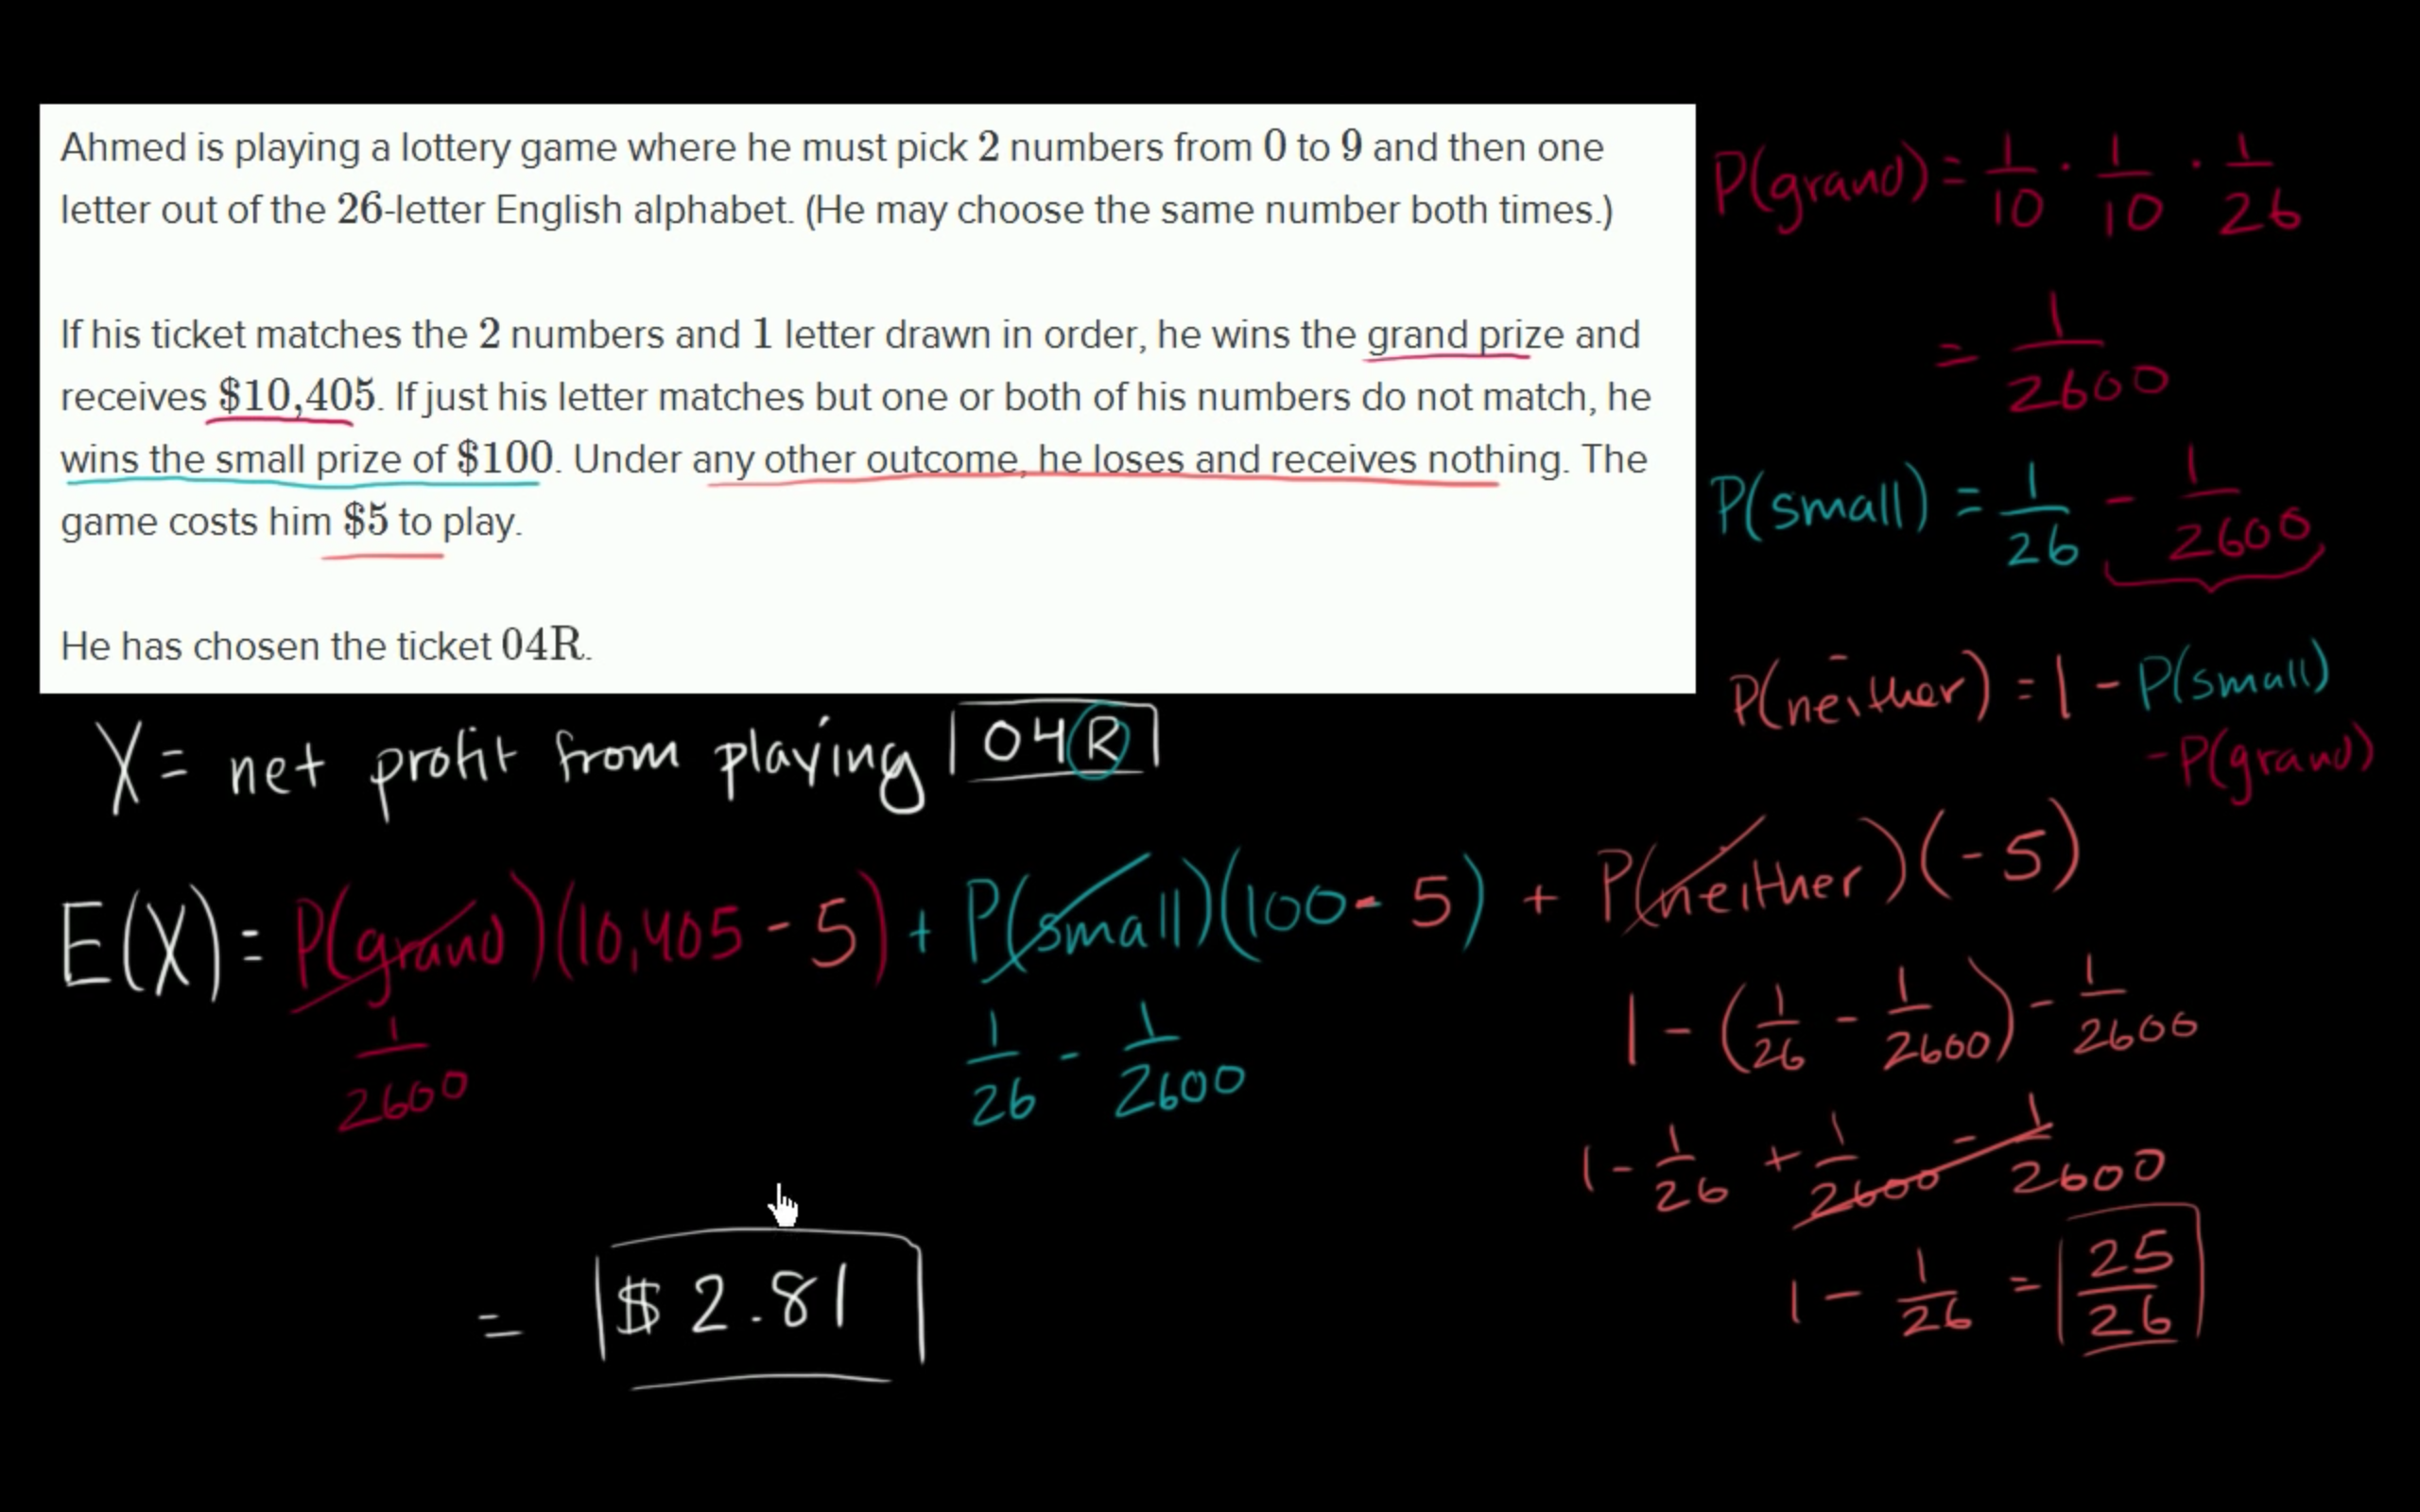 Ahmed is playing a lottery game where he must pick 2 numbers from 0 to 9 and then one
letter out of the 26-letter English alphabet. (He may choose the same number both times.)
If his ticket matches the 2 numbers and 1 letter drawn in order, he wins the grand prize and
receives $10,405. If just his letter matches but one or both of his numbers do not match, he
wins the small prize of $100. Under any other outcome, he loses and receives nothing. The
game costs him $5 to play.
He has chosen the ticket 04R.
P(grand) = 1/10 · 1/10 · 1/26
= 1/2600
P(small) = 1/26 - 1/2600
P(neither) = 1 - P(small)
- P(grand)
X = net profit from playing 04R
E(X) = P(grand)(10,405 - 5) + P(small)(100 - 5) + P(neither)(-5)
1/2600
1/26 - 1/2600
1 - (1/26 - 1/2600) - 1/2600
1 - 1/26 + 1/2600 - 1/2600
1 - 1/26 = 25/26
= $2.81